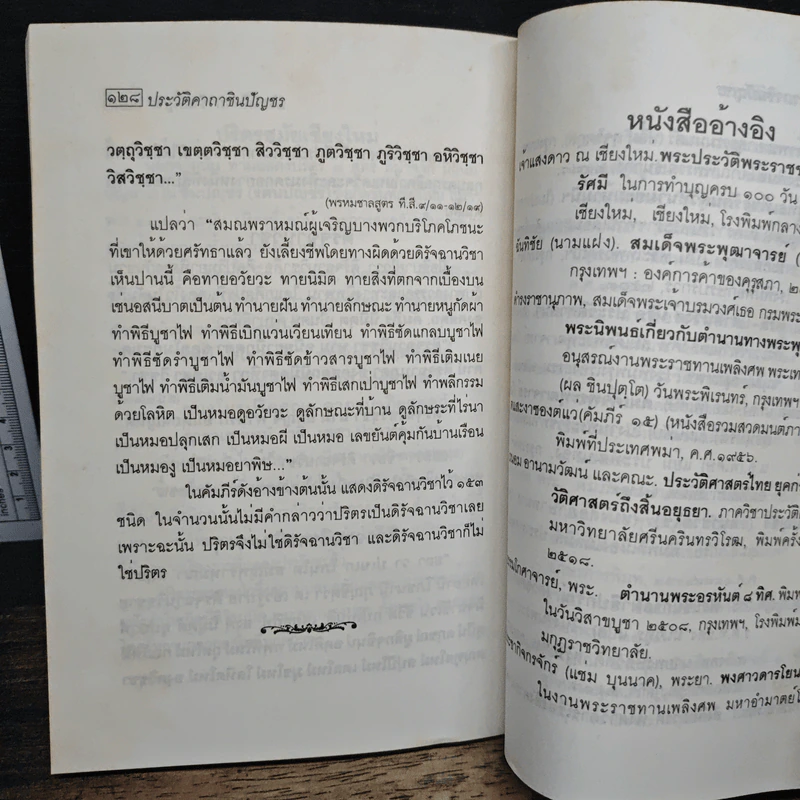 ๑๒๘ ประวัติคาถาชินบัญชร
วตฺถุวิชฺชา เขตฺตวิชฺชา สิววิชฺชา ภูตวิชฺชา ภูริวิชฺชา อหิวิชฺชา
วิสวิชฺชา..."
(พรหมชาลสูตร ที.สี.๙/๑๑-๑๒/๑๙)
แปลว่า "สมณพราหมณ์ผู้เจริญบางพวกบริโภคโภชนะ
ที่เขาให้ด้วยศรัทธาแล้ว ยังเลี้ยงชีพโดยทางผิดด้วยดิรัจฉานวิชา
เห็นปานนี้ คือทายอวัยวะ ทายนิมิต ทายสิ่งที่ตกจากเบื้องบน
เช่นอสนีบาตเป็นต้น ทำนายฝัน ทำนายลักษณะ ทำนายหนูกัดผ้า
ทำพิธีบูชาไฟ ทำพิธีเบิกแว่นเวียนเทียน ทำพิธีซัดแกลบบูชาไฟ
ทำพิธีซัดรำบูชาไฟ ทำพิธีซัดข้าวสารบูชาไฟ ทำพิธีเติมเนย
บูชาไฟ ทำพิธีเติมน้ำมันบูชาไฟ ทำพิธีเสกเป่าบูชาไฟ ทำพลีกรรม
ด้วยโลหิต เป็นหมอดูอวัยวะ ดูลักษณะที่บ้าน ดูลักษระที่ไร่นา
เป็นหมอปลุกเสก เป็นหมอผี เป็นหมอ เลขยันต์คุ้มกันบ้านเรือน
เป็นหมองู เป็นหมอยาพิษ..."
ในคัมภีร์ดังอ้างข้างต้นนั้น แสดงดิรัจฉานวิชาไว้ ๑๕๓
ชนิด ในจำนวนนั้นไม่มีคำกล่าวว่าปริตรเป็นดิรัจฉานวิชาเลย
เพราะฉะนั้น ปริตรจึงไม่ใช่ดิรัจฉานวิชา และดิรัจฉานวิชาก็ไม่
ใช่ปริตร
หนังสืออ้างอิง
เจ้าแสงดาว ณ เชียงใหม่. พระประวัติพระราชช
รัศมี ในการทำบุญครบ ๑๐๐ วัน
เชียงใหม่, เชียงใหม่, โรงพิมพ์กลาง
ฉันทิชัย (นามแฝง). สมเด็จพระพุฒาจารย์ (
กรุงเทพฯ : องค์การค้าของคุรุสภา, ๒
ดำรงราชานุภาพ, สมเด็จพระเจ้าบรมวงศ์เธอ กรมพระ
พระนิพนธ์เกี่ยวกับตำนานทางพระพุ
อนุสรณ์งานพระราชทานเพลิงศพ พระเท
(ผล ชินปุตฺโต) วันพระพิเรนทร์, กรุงเทพฯ
(คัมภีร์ ๑๕) (หนังสือรวมสวดมนต์ภา
พิมพ์ที่ประเทศพม่า, ค.ศ.๑๙๕๖.
อานามวัฒน์ และคณะ. ประวัติศาสตร์ไทย ยุคก่
วัติศาสตร์ถึงสิ้นอยุธยา. ภาควิชาประวัติ
มหาวิทยาลัยศรีนครินทรวิโรฒ, พิมพ์ครั้ง
๒๕๑๘.
พระ. ตำนานพระอรหันต์ ๘ ทิศ. พิมพ
ในวันวิสาขบูชา ๒๕๐๘, กรุงเทพฯ, โรงพิมพ์ม
มกุฏราชวิทยาลัย.
(แช่ม บุนนาค), พระยา. พงศาวดารโยน
ในงานพระราชทานเพลิงศพ มหาอำมาตย์โ